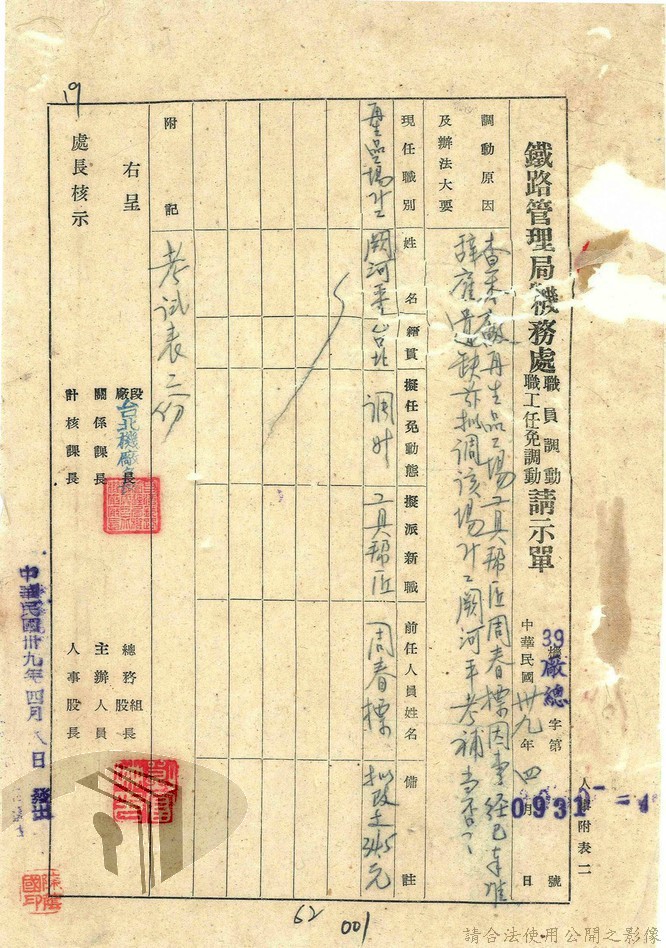 人事附表二
鐵路管理局機務處職員調動職工任免調動請示單
39機廠總字第0931號
中華民國卅九年四月日
調動原因及辦法大要
查本廠再生品工場工具幫匠周春標因事經已奉准
辭雇遺缺茲擬調該場計工闕河平考補當否
現任職別
姓名
籍貫
擬任免動態
擬派新職
前任人員姓名
備註
再生品場計工
闕河平
台北
調升
工具幫匠
周春標
擬改支345元
附記
考試表二份
右呈
段廠長
台北機廠
總務組股長
關係課長
主辦人員
處長核示
計核課長
人事股長
19
中華民國卅九年四月八日發出
62
001
請合法使用公開之影像